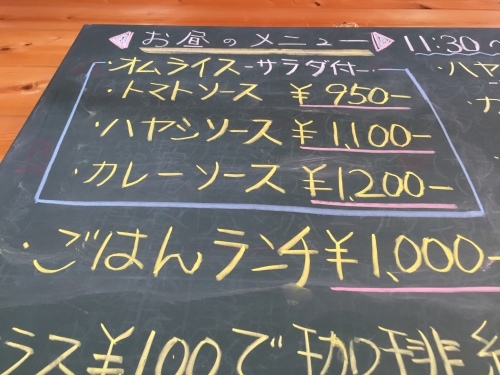 お昼のメニュー 11:30~
・オムライス-サラダ付-
・トマトソース ¥950-
・ハヤシソース ¥1,100-
・カレーソース ¥1,200-
・ごはんランチ¥1,000-
ラス¥100で珈琲